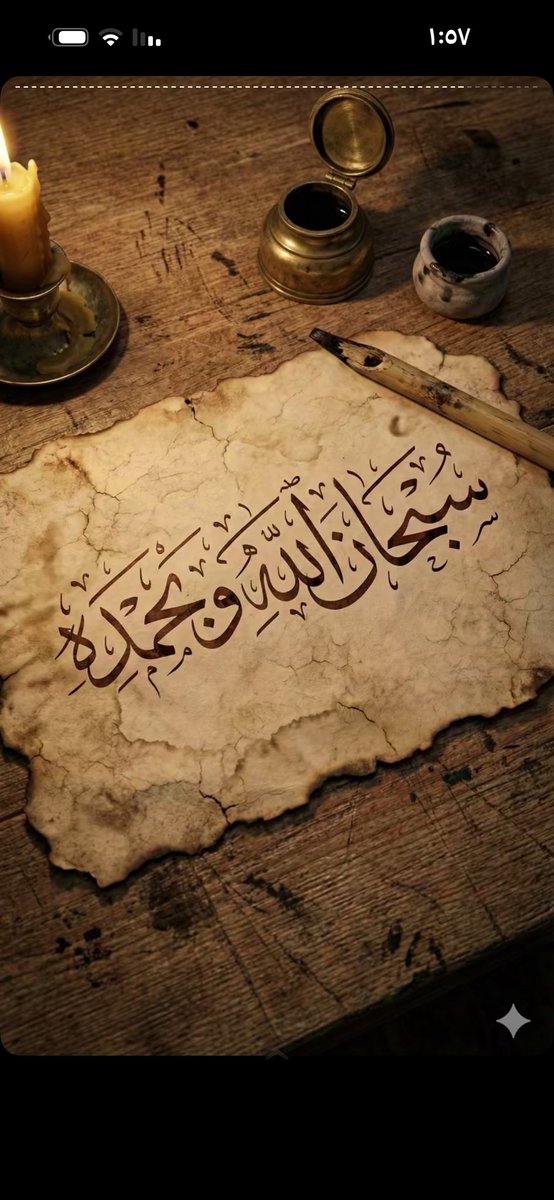 ١:٥٧
سُبْحَانَ اللَّهِ وَبِحَمْدِهِ